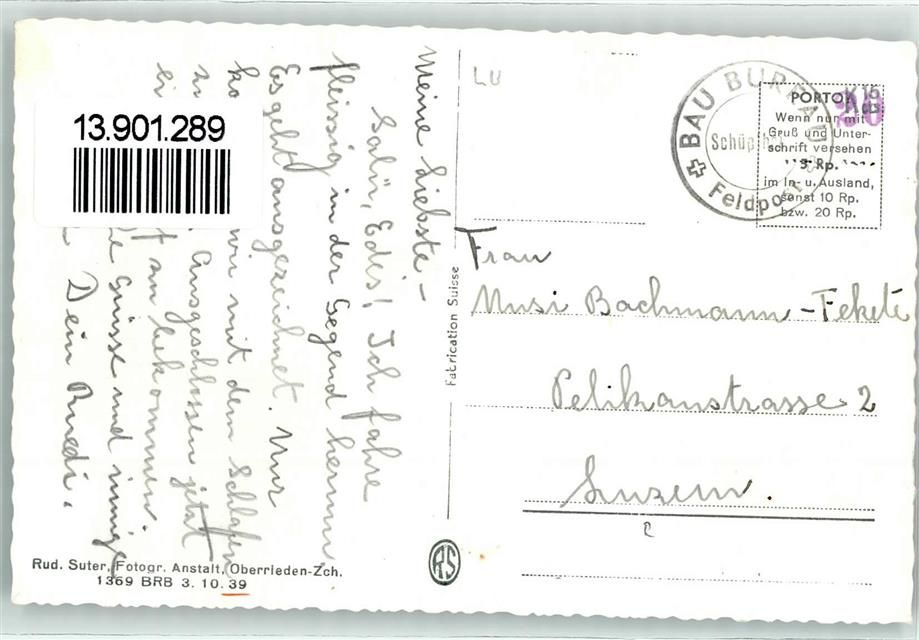 Meine Liebste –
Salü, Edes! Ich fahre
fleissig in der Gegend herum
Es geht ausgezeichnet. Nur
wir mit dem Schlafen
Ausgeschlossen jetzt
zu bekommen.
Grüsse und innige
Dein Ruedi.
13.901.289
Rud. Suter, Fotogr. Anstalt, Oberrieden-Zch.
1369 BRB 3. 10. 39
Fabrication Suisse
RS
LU
BAU BUREAU
Feldpost
PORTO
Wenn nur mit
Gruß und Unter-
schrift versehen
5 Rp.
im In- u. Ausland,
sonst 10 Rp.
bzw. 20 Rp.
Frau
Musi Bachmann-Fekete
Pelikanstrasse 2
Luzern.